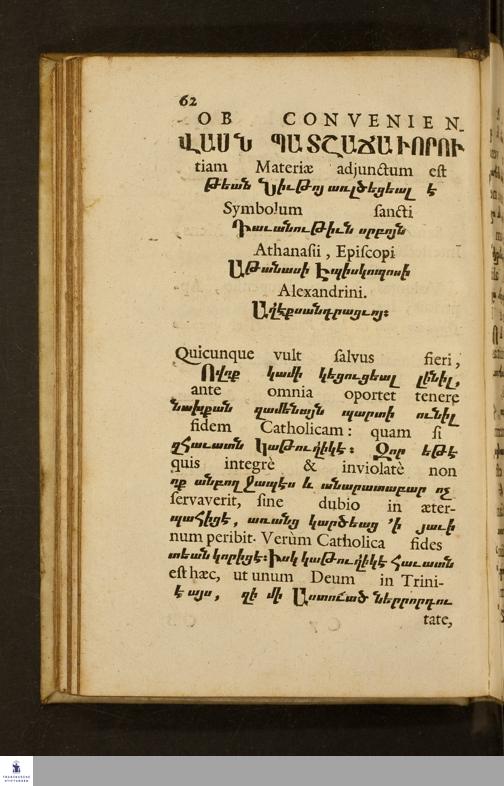 62
OB CONVENIEN-
ՎԱՍՆ ՊԱՏՇԱՃԱՒՈՐՈՒ
tiam Materiæ adjunctum eſt
թեան Նիւթոյ առլծեցեալ է
Symbolum ſancti
Դաւանութիւն սրբոյն
Athanaſii, Epiſcopi
Աթանասի Էպիսկոպոսի
Alexandrini.
Աղէքսանդրացւոյ։
Quicunque vult ſalvus fieri,
Ովոք կամի կեցուցեալ լինիլ,
ante omnia oportet tenere
նախքան զամենայն պարտի ունիլ
fidem Catholicam: quam ſi
զՀաւատն Կաթուղիկէ։ Զոր եթէ
quis integrè & inviolatè non
ոք անբողջապէս և անարատաբար ոչ
ſervaverit, ſine dubio in æter-
պահիցէ, առանց կարծեաց ՚ի յաւի
num peribit. Verùm Catholica fides
տեան կորիցէ։ Իսկ կաթուղիկէ Հաւատն
eſt hæc, ut unum Deum in Trini-
է այս, զի մի Աստուած ներրորդու
tate,